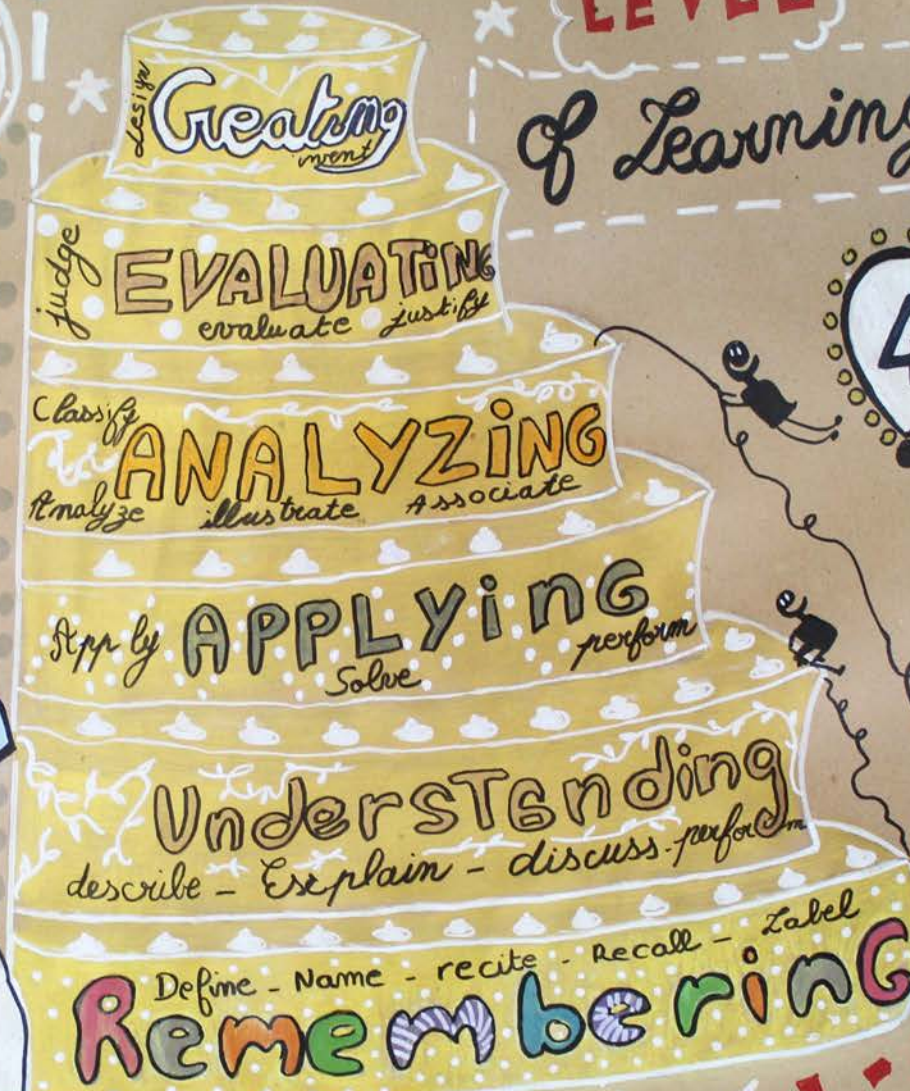 LEVEL
of Learning
design
Creating
invent
judge
EVALUATiNG
evaluate justify
Classify
ANALYZiNG
Analyze illustrate Associate
Apply APPLYiNG perform
Solve
UndersTanding
describe - Explain - discuss - perform
Define - Name - recite - Recall - Label
RemembeRinG